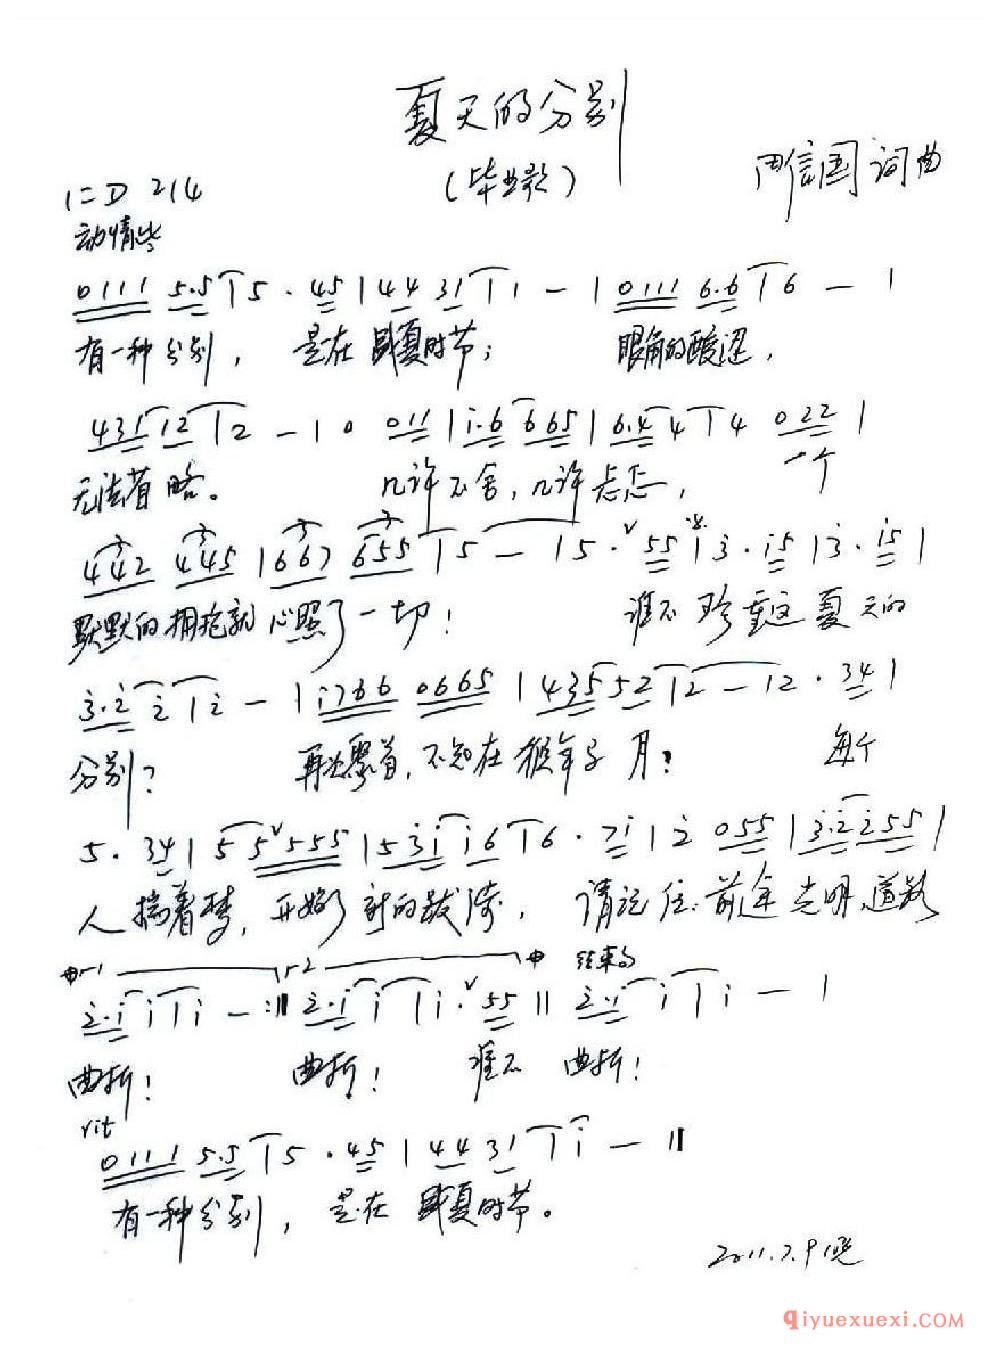 夏天的分别
(毕业歌)
周信国 词曲
1=D 2/4
动情些
0111 5.5 | 5 . 45 | 44 31 | 1 - | 0111 6.6 | 6 - |
有一种分别, 是在盛夏时节; 眼角的酸涩,
431 12 | 2 - | 0 011 | i.6 665 | 6.4 4 | 4 022 |
无法省略。 几许不舍,几许忐忑, 一个
442 445 | 667 655 | 5 - | 5 . 55 | 3 . i5 | 3 . i5 |
默默的拥抱就心照了一切! 谁不珍重这夏天的
3.2 2 | 2 - | i766 0665 | 435 52 | 2 - | 2 . 34 |
分别? 再次聚首,不知在猴年子月? 每个
5 . 34 | 5 5555 | 53i i6 | 6 . 7i | 2 055 | 3.2 255 |
人揣着梦,开始了新的跋涉, 请记住:前途光明,道路
1 2 结束句
2.i i | i - :|| 2.i i | i . 55 || 2.i i | i - |
曲折! 曲折! 谁不 曲折!
rit
0111 5.5 | 5 . 45 | 44 31 | i - ||
有一种分别, 是在盛夏时节。
2011.7.9
qiyuexuexi.COM